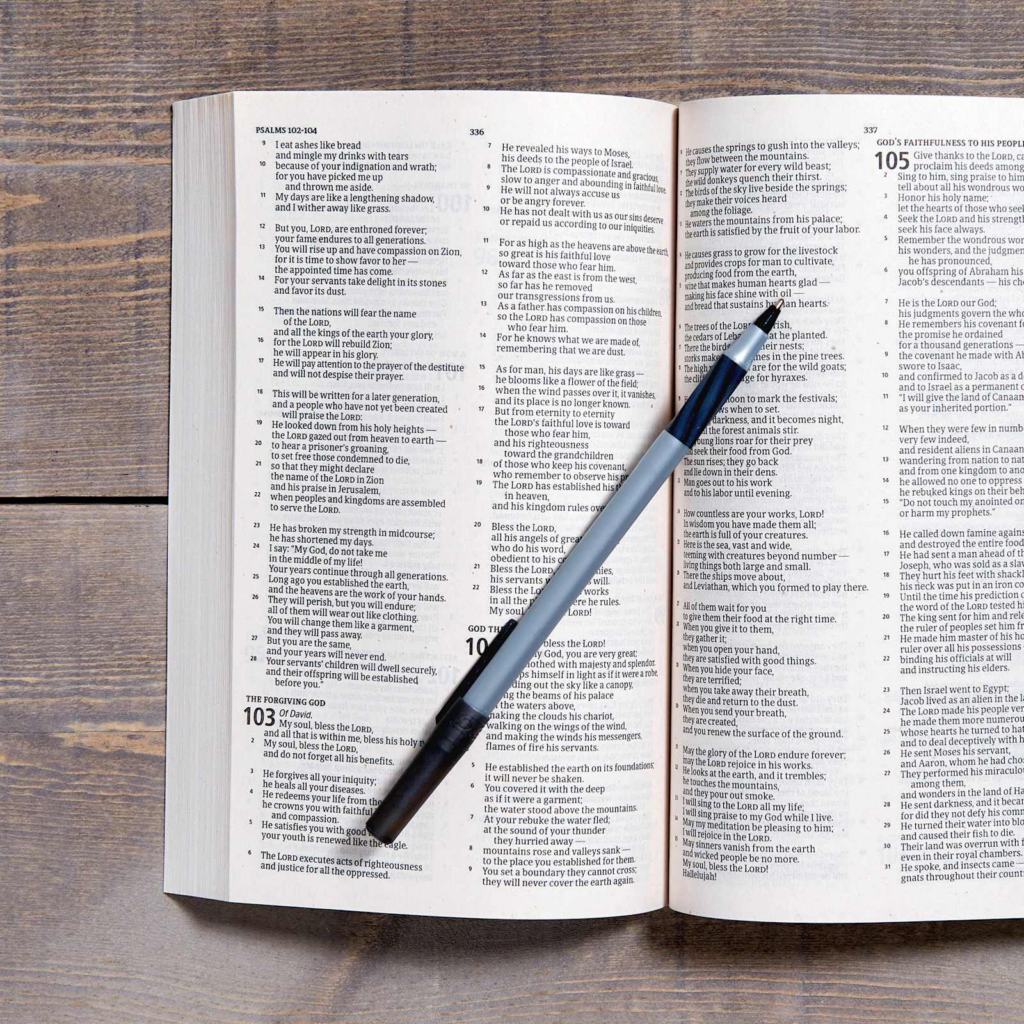 PSALMS 102-104
336
9 I eat ashes like bread
and mingle my drinks with tears
10 because of your indignation and wrath;
for you have picked me up
and thrown me aside.
11 My days are like a lengthening shadow,
and I wither away like grass.
12 But you, LORD, are enthroned forever;
your fame endures to all generations.
13 You will rise up and have compassion on Zion,
for it is time to show favor to her —
the appointed time has come.
14 For your servants take delight in its stones
and favor its dust.
15 Then the nations will fear the name
of the LORD,
and all the kings of the earth your glory,
16 for the LORD will rebuild Zion;
he will appear in his glory.
17 He will pay attention to the prayer of the destitute
and will not despise their prayer.
18 This will be written for a later generation,
and a people who have not yet been created
will praise the LORD:
19 He looked down from his holy heights —
the LORD gazed out from heaven to earth —
20 to hear a prisoner's groaning,
to set free those condemned to die,
21 so that they might declare
the name of the LORD in Zion
and his praise in Jerusalem,
22 when peoples and kingdoms are assembled
to serve the LORD.
23 He has broken my strength in midcourse;
he has shortened my days.
24 I say: "My God, do not take me
in the middle of my life!
Your years continue through all generations.
25 Long ago you established the earth,
and the heavens are the work of your hands.
26 They will perish, but you will endure;
all of them will wear out like clothing.
You will change them like a garment,
and they will pass away.
27 But you are the same,
and your years will never end.
28 Your servants' children will dwell securely,
and their offspring will be established
before you."
THE FORGIVING GOD
103 Of David.
My soul, bless the LORD,
and all that is within me, bless his holy
2 My soul, bless the LORD,
and do not forget all his benefits.
3 He forgives all your iniquity;
he heals all your diseases.
4 He redeems your life from the
he crowns you with faithful
and compassion.
5 He satisfies you with good
your youth is renewed like the eagle.
6 The LORD executes acts of righteousness
and justice for all the oppressed.
7 He revealed his ways to Moses,
his deeds to the people of Israel.
8 The LORD is compassionate and gracious,
slow to anger and abounding in faithful love.
9 He will not always accuse us
or be angry forever.
10 He has not dealt with us as our sins deserve
or repaid us according to our iniquities.
11 For as high as the heavens are above the earth,
so great is his faithful love
toward those who fear him.
12 As far as the east is from the west,
so far has he removed
our transgressions from us.
13 As a father has compassion on his children,
so the LORD has compassion on those
who fear him.
14 For he knows what we are made of,
remembering that we are dust.
15 As for man, his days are like grass —
he blooms like a flower of the field;
16 when the wind passes over it, it vanishes,
and its place is no longer known.
17 But from eternity to eternity
the LORD's faithful love is toward
those who fear him,
and his righteousness
toward the grandchildren
18 of those who keep his covenant,
who remember to observe his
19 The LORD has established his
in heaven,
and his kingdom rules over
20 Bless the LORD,
all his angels of great
who do his word,
obedient to his
21 Bless the LORD,
his servants will.
22 Bless the LORD works
in all the he rules.
My soul, LORD!
GOD THE
10 bless the LORD!
God, you are very great;
with majesty and splendor.
himself in light as if it were a robe,
out the sky like a canopy,
the beams of his palace
the waters above,
making the clouds his chariot,
walking on the wings of the wind,
and making the winds his messengers,
flames of fire his servants.
5 He established the earth on its foundations;
it will never be shaken.
6 You covered it with the deep
as if it were a garment;
the water stood above the mountains.
7 At your rebuke the water fled;
at the sound of your thunder
they hurried away —
8 mountains rose and valleys sank —
to the place you established for them.
9 You set a boundary they cannot cross;
they will never cover the earth again.
337
He causes the springs to gush into the valleys;
they flow between the mountains.
They supply water for every wild beast;
the wild donkeys quench their thirst.
The birds of the sky live beside the springs;
they make their voices heard
among the foliage.
He waters the mountains from his palace;
the earth is satisfied by the fruit of your labor.
He causes grass to grow for the livestock
and provides crops for man to cultivate,
producing food from the earth,
wine that makes human hearts glad —
making his face shine with oil —
and bread that sustains human hearts.
The trees of the LORD
the cedars of that he planted.
There the birds their nests;
storks make in the pine trees.
The high are for the wild goats;
the for hyraxes.
moon to mark the festivals;
when to set.
darkness, and it becomes night,
the forest animals stir.
young lions roar for their prey
seek their food from God.
The sun rises; they go back
and lie down in their dens.
Man goes out to his work
and to his labor until evening.
How countless are your works, LORD!
In wisdom you have made them all;
the earth is full of your creatures.
Here is the sea, vast and wide,
teeming with creatures beyond number —
living things both large and small.
There the ships move about,
and Leviathan, which you formed to play there.
All of them wait for you
to give them their food at the right time.
When you give it to them,
they gather it;
when you open your hand,
they are satisfied with good things.
When you hide your face,
they are terrified;
when you take away their breath,
they die and return to the dust.
When you send your breath,
they are created,
and you renew the surface of the ground.
May the glory of the LORD endure forever;
may the LORD rejoice in his works.
He looks at the earth, and it trembles;
he touches the mountains,
and they pour out smoke.
I will sing to the LORD all my life;
I will sing praise to my God while I live.
May my meditation be pleasing to him;
I will rejoice in the LORD.
May sinners vanish from the earth
and wicked people be no more.
My soul, bless the LORD!
Hallelujah!
GOD'S FAITHFULNESS TO HIS PEOPLE
105 Give thanks to the LORD,
proclaim his deeds among
2 Sing to him, sing praise to him
tell about all his wondrous
3 Honor his holy name;
let the hearts of those who seek
4 Seek the LORD and his strength
seek his face always.
5 Remember the wondrous
his wonders, and the
he has pronounced,
6 you offspring of Abraham his
Jacob's descendants — his
7 He is the LORD our God;
his judgments govern the
8 He remembers his covenant
the promise he ordained
for a thousand generations —
9 the covenant he made with
swore to Isaac,
10 and confirmed to Jacob as a
and to Israel as a permanent
11 "I will give the land of Canaan
as your inherited portion."
12 When they were few in
very few indeed,
and resident aliens in Canaan
13 wandering from nation to
and from one kingdom to
14 he allowed no one to oppress
he rebuked kings on their
15 "Do not touch my anointed
or harm my prophets."
16 He called down famine against
and destroyed the entire
17 He had sent a man ahead of
Joseph, who was sold as a
18 They hurt his feet with
his neck was put in an iron
19 Until the time his prediction
the word of the LORD tested
20 The king sent for him and
the ruler of peoples set him
21 He made him master of his
ruler over all his possessions
22 binding his officials at will
and instructing his elders.
23 Then Israel went to Egypt;
Jacob lived as an alien in the
24 The LORD made his people
he made them more
25 whose hearts he turned to
and to deal deceptively with
26 He sent Moses his servant,
and Aaron, whom he had
27 They performed his
among them,
and wonders in the land of
28 He sent darkness, and it
for did they not defy his
29 He turned their water into
and caused their fish to die.
30 Their land was overrun with
even in their royal chambers.
31 He spoke, and insects came —
gnats throughout their